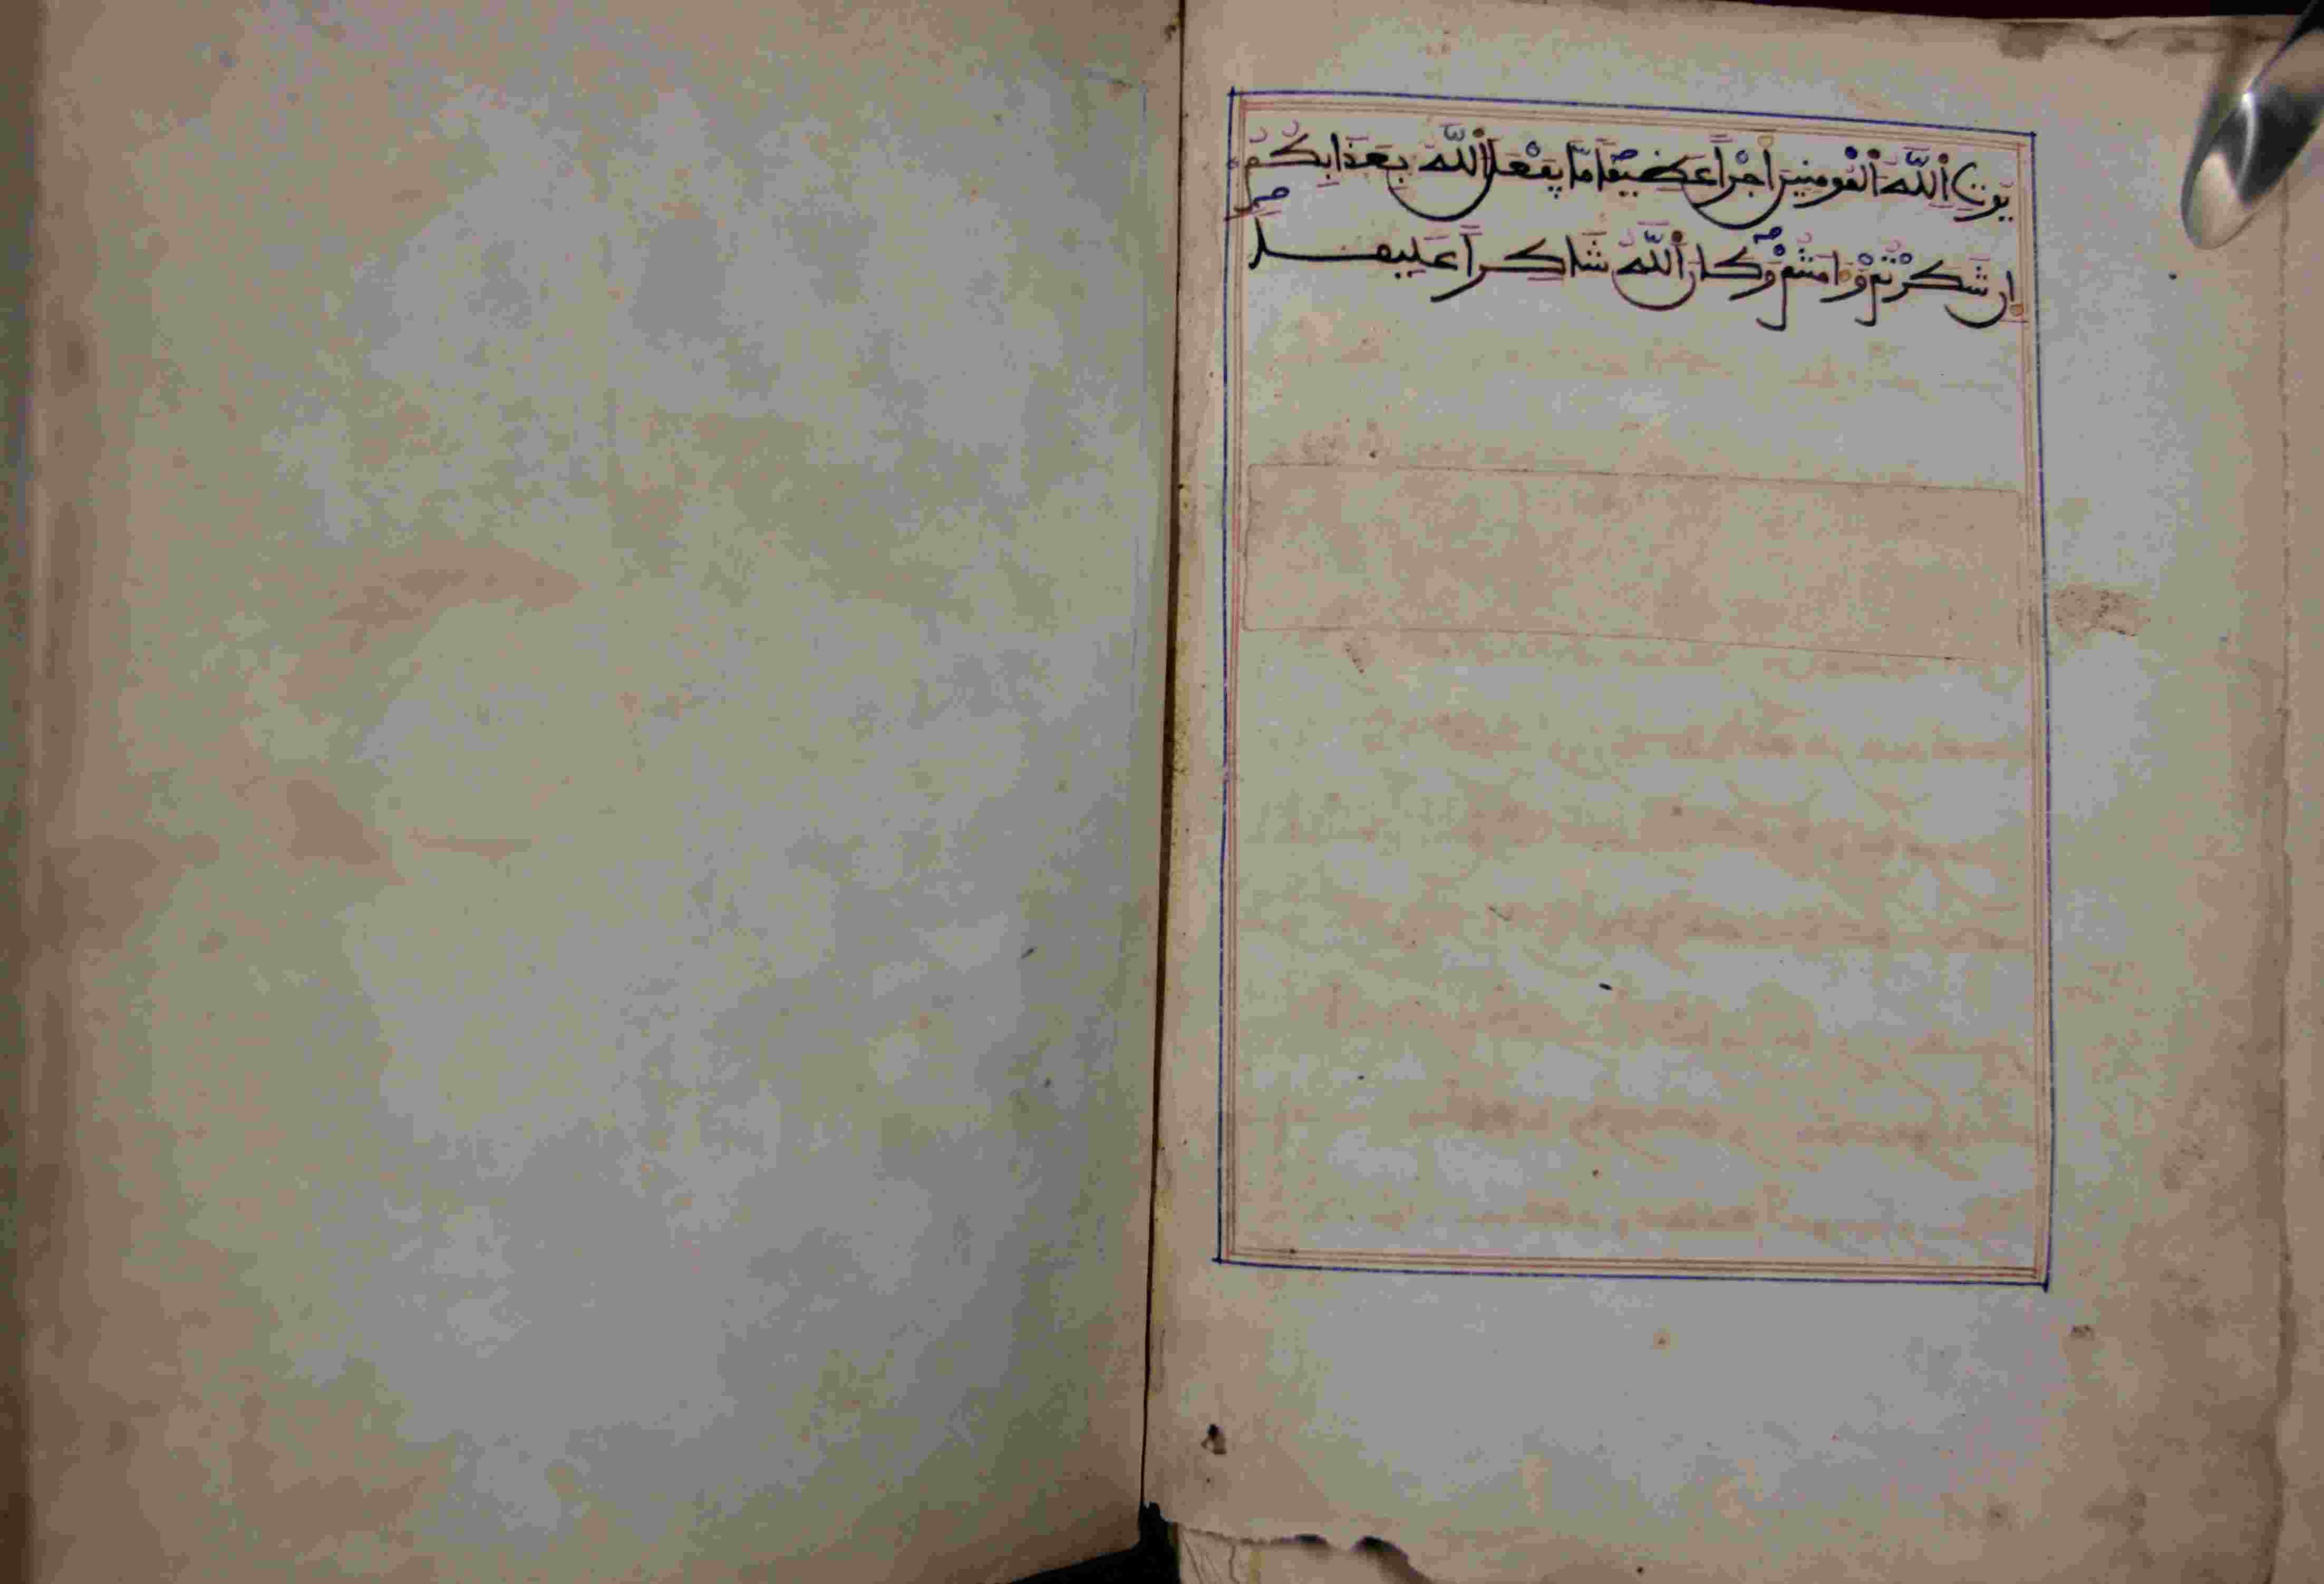 يُوتِ اللَّهُ الْمُومِنِينَ أَجْراً عَظِيماً مَّا يَفْعَلُ اللَّهُ بِعَذَابِكُمْ
إِن شَكَرْتُمْ وَءَامَنتُمْ وَكَانَ اللَّهُ شَاكِراً عَلِيماً